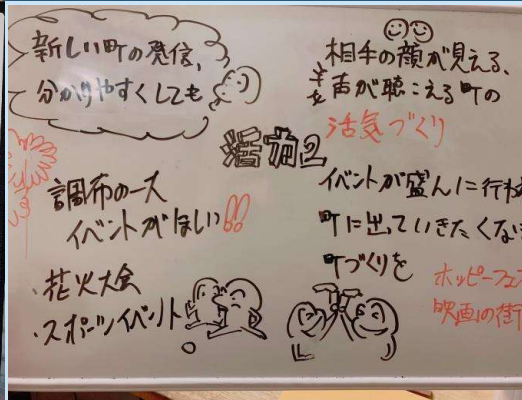 新しい町の発信、
分かりやすくしても
相手の顔が見える、
声が聴こえる町の
活気づくり
活力2
調布の一大
イベントがほしい!!
・花火大会
・スポーツイベント
イベントが盛んに行わ
町に出っていきたくな
町づくりを
ホッピーフェ
映画の街